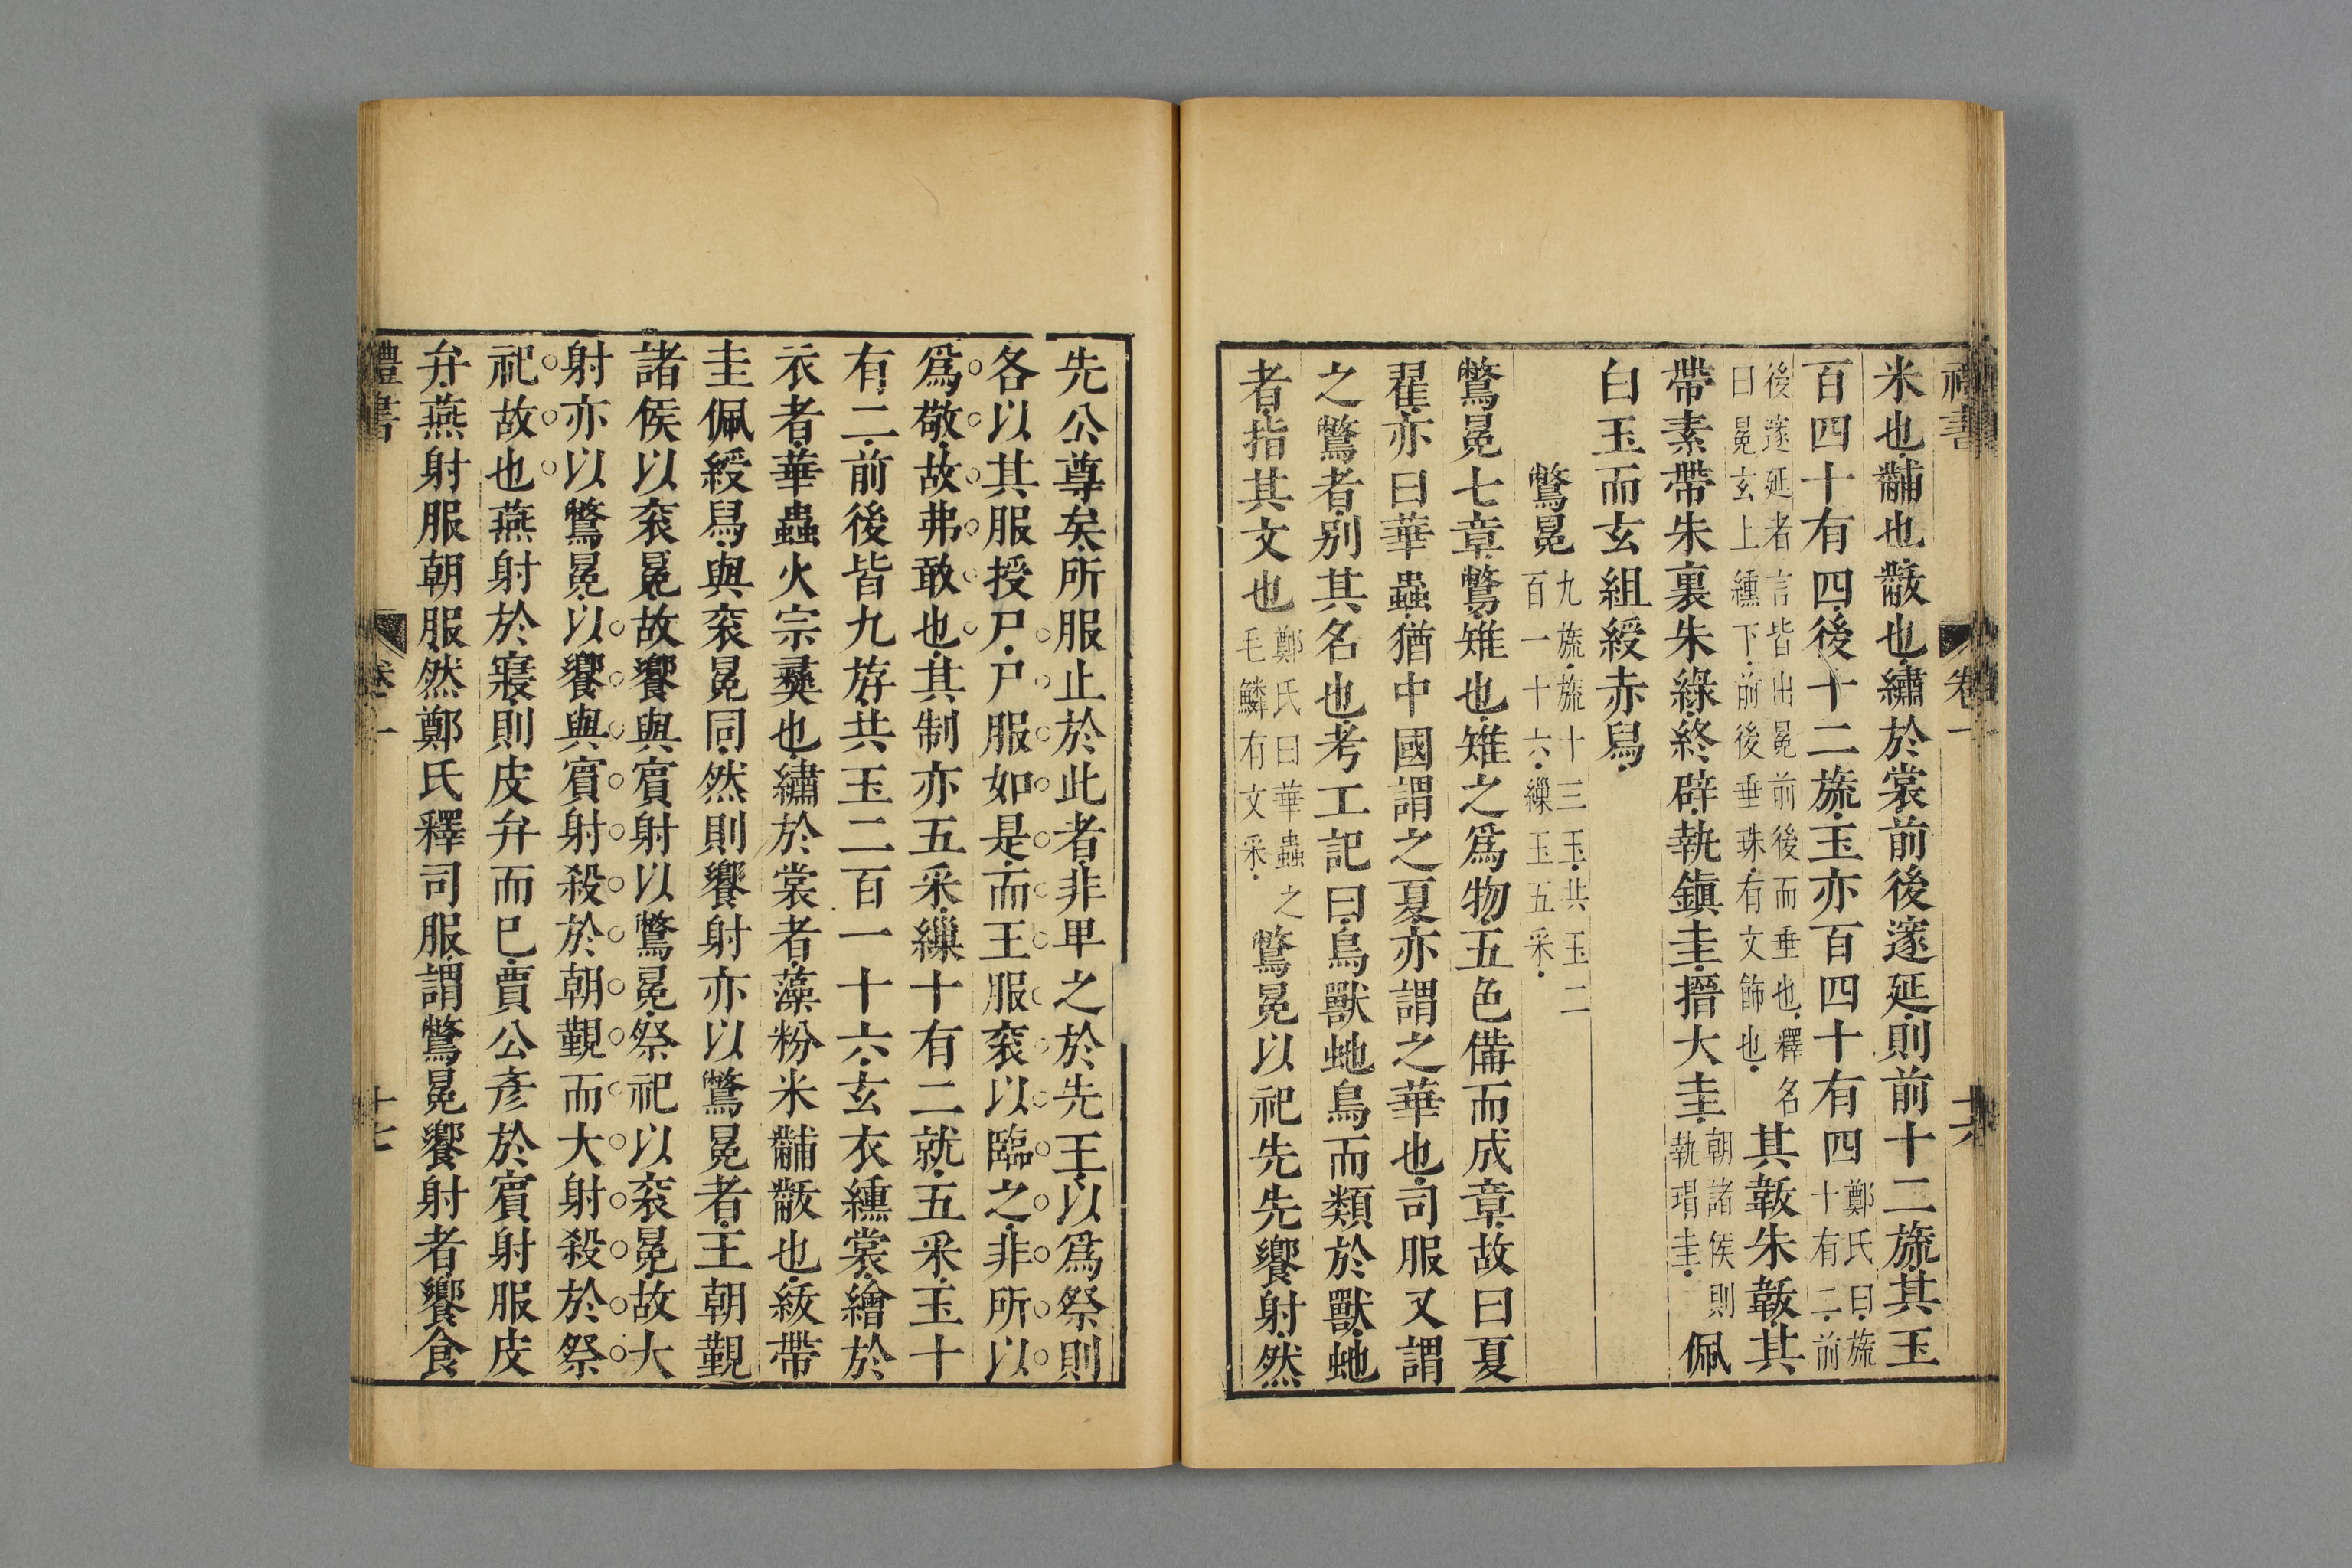 禮書 卷一 十六
米也黼也黻也繡於裳前後邃延則前十二旒其玉
百四十有四後十二旒玉亦百四十有四鄭氏曰旒十有二前
後邃延者言皆出冕前後而垂也釋名曰冕玄上纁下前後垂珠有文飾也其韍朱韍其
帶素帶朱裏朱綠終辟執鎭圭搢大圭朝諸侯則執瑁圭佩
白玉而玄組綬赤舄
鷩冕九旒旒十三玉共玉二百一十六繅玉五采
鷩冕七章鷩雉也雉之爲物五色備而成章故曰夏
翟亦曰華蟲猶中國謂之夏亦謂之華也司服又謂
之鷩者別其名也考工記曰鳥獸虵鳥而類於獸虵
者指其文也鄭氏曰華蟲之毛鱗有文采鷩冕以祀先先饗射然
先公尊矣所服止於此者非卑之於先王以爲祭則
各以其服授尸尸服如是而王服衮以臨之非所以
爲敬故弗敢也其制亦五采繅十有二就五采玉十
有二前後皆九斿共玉二百一十六玄衣纁裳繪於
衣者華蟲火宗彞也繡於裳者藻粉米黼黻也紱帶
圭佩綬舄與衮冕同然則饗射亦以鷩冕者王朝覲
諸侯以衮冕故饗與賓射以鷩冕祭祀以衮冕故大
射亦以鷩冕以饗與賓射殺於朝覲而大射殺於祭
祀故也燕射於寢則皮弁而已賈公彥於賓射服皮
弁燕射服朝服然鄭氏釋司服謂鷩冕饗射者饗食
禮書 卷一 十七